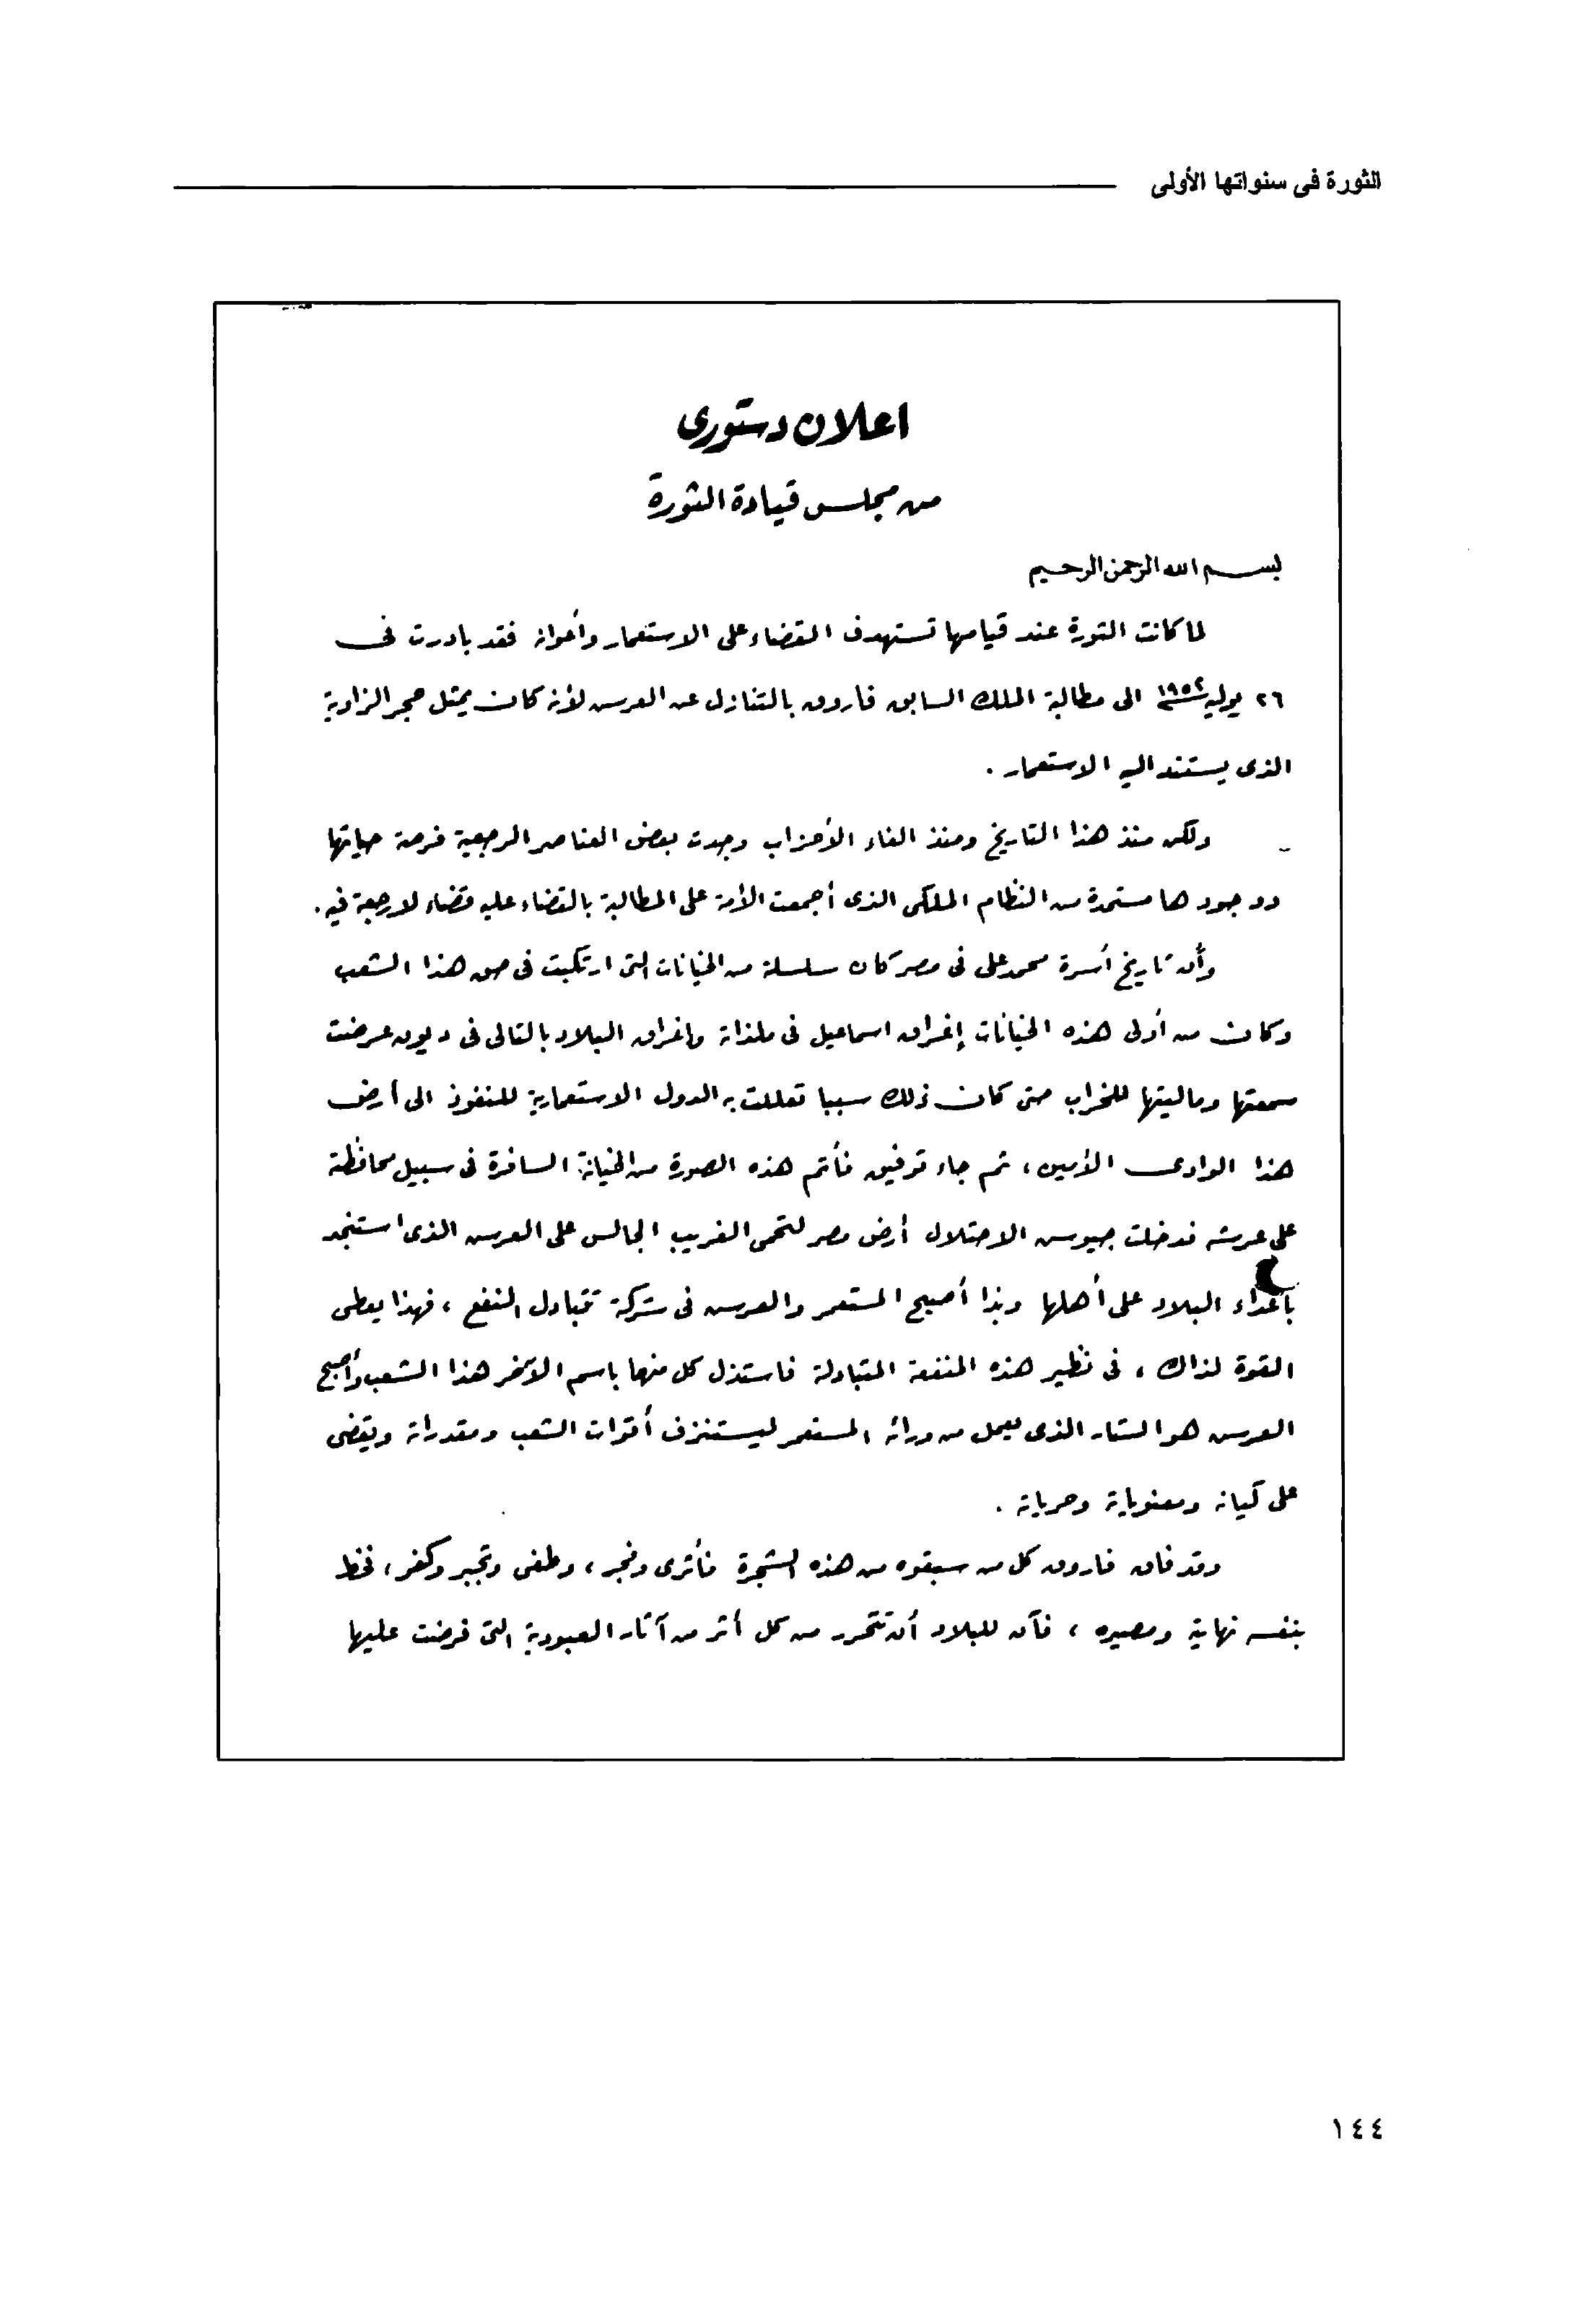 الثورة فى سنواتها الأولى
اعلان دستورى
من مجلس قيادة الثورة
بسم الله الرحمن الرحيم
لما كانت الثورة عند قيامها تستهدف القضاء على الاستعمار وأعوانه فقد بادرت فى
٢٦ يوليه سنة ١٩٥٢ الى مطالبة الملك السابق فاروق بالتنازل عن العرش لأنه كان يمثل حجر الزاوية
الذى يستند اليه الاستعمار .
ولكن منذ هذا التاريخ ومنذ الغاء الأحزاب وجدت بعض العناصر الرجعية فرصة حياتها
ووجودها مستمدة من النظام الملكى الذى أجمعت الأمة على المطالبة بالقضاء عليه قضاء لا رجعة فيه .
وأن تاريخ أسرة محمد على فى مصر كان سلسلة من الخيانات التى ارتكبت فى حق هذا الشعب
وكان من أولى هذه الخيانات إغراق اسماعيل فى ملذاته واغراق البلاد بالتالى فى ديون عرضت
سمعتها وماليتها للخراب حتى كان ذلك سببا تعللت به الدول الاستعمارية للنفوذ الى أرض
هذا الوادى الأمين ، ثم جاء توفيق فأتم هذه الصورة من الخيانة السافرة فى سبيل محافظته
على عرشه فدخلت جيوش الاحتلال أرض مصر لتحمى الغريب الجالس على العرش الذى استنجد
بأعداء البلاد على أهلها وبذا أصبح المستعمر والعرش فى شركة تتبادل النفع ، فهذا يعطى
القوة لذاك ، فى نظير هذه المنفعة المتبادلة فاستذل كل منهما باسم الآخر هذا الشعب وأصبح
العرش هو الستار الذى يعمل من ورائه المستعمر ليستنزف أقوات الشعب ومقدراته ويقضى
على كيانه ومعنوياته وحرياته .
وقد فاق فاروق كل من سبقوه من هذه الشجرة فأثرى وفجر ، وطغى وتجبر وكفر ، فخط
بنفسه نهايته ومصيره ، فآن للبلاد أن تتحرر من كل أثر من آثار العبودية التى فرضت عليها
١٤٤